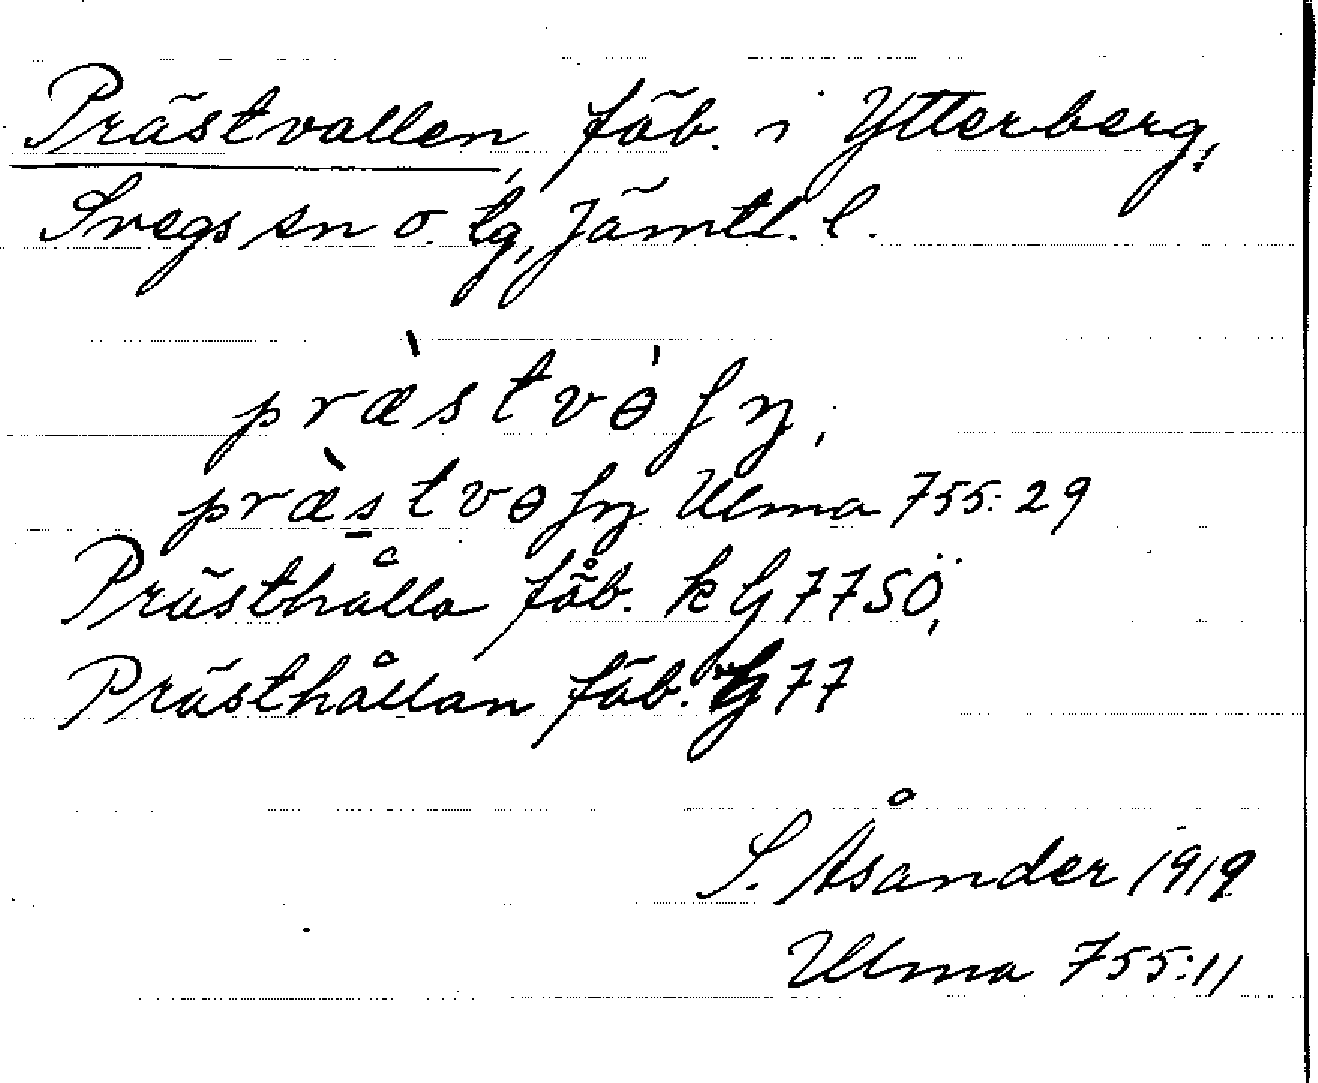 Prästvallen, fäb. i Ytterberg,
Svegs sn o. tg, Jämtl. l.
præ̀stvɵ̀ʃn̥,
præ̀stvɵʃn̥ Ulma 755:29
Prästhålla fäb. k G 77 SÖ,
Prästhållan fäb. G 77
S. Åsander 1919
Ulma 755:11